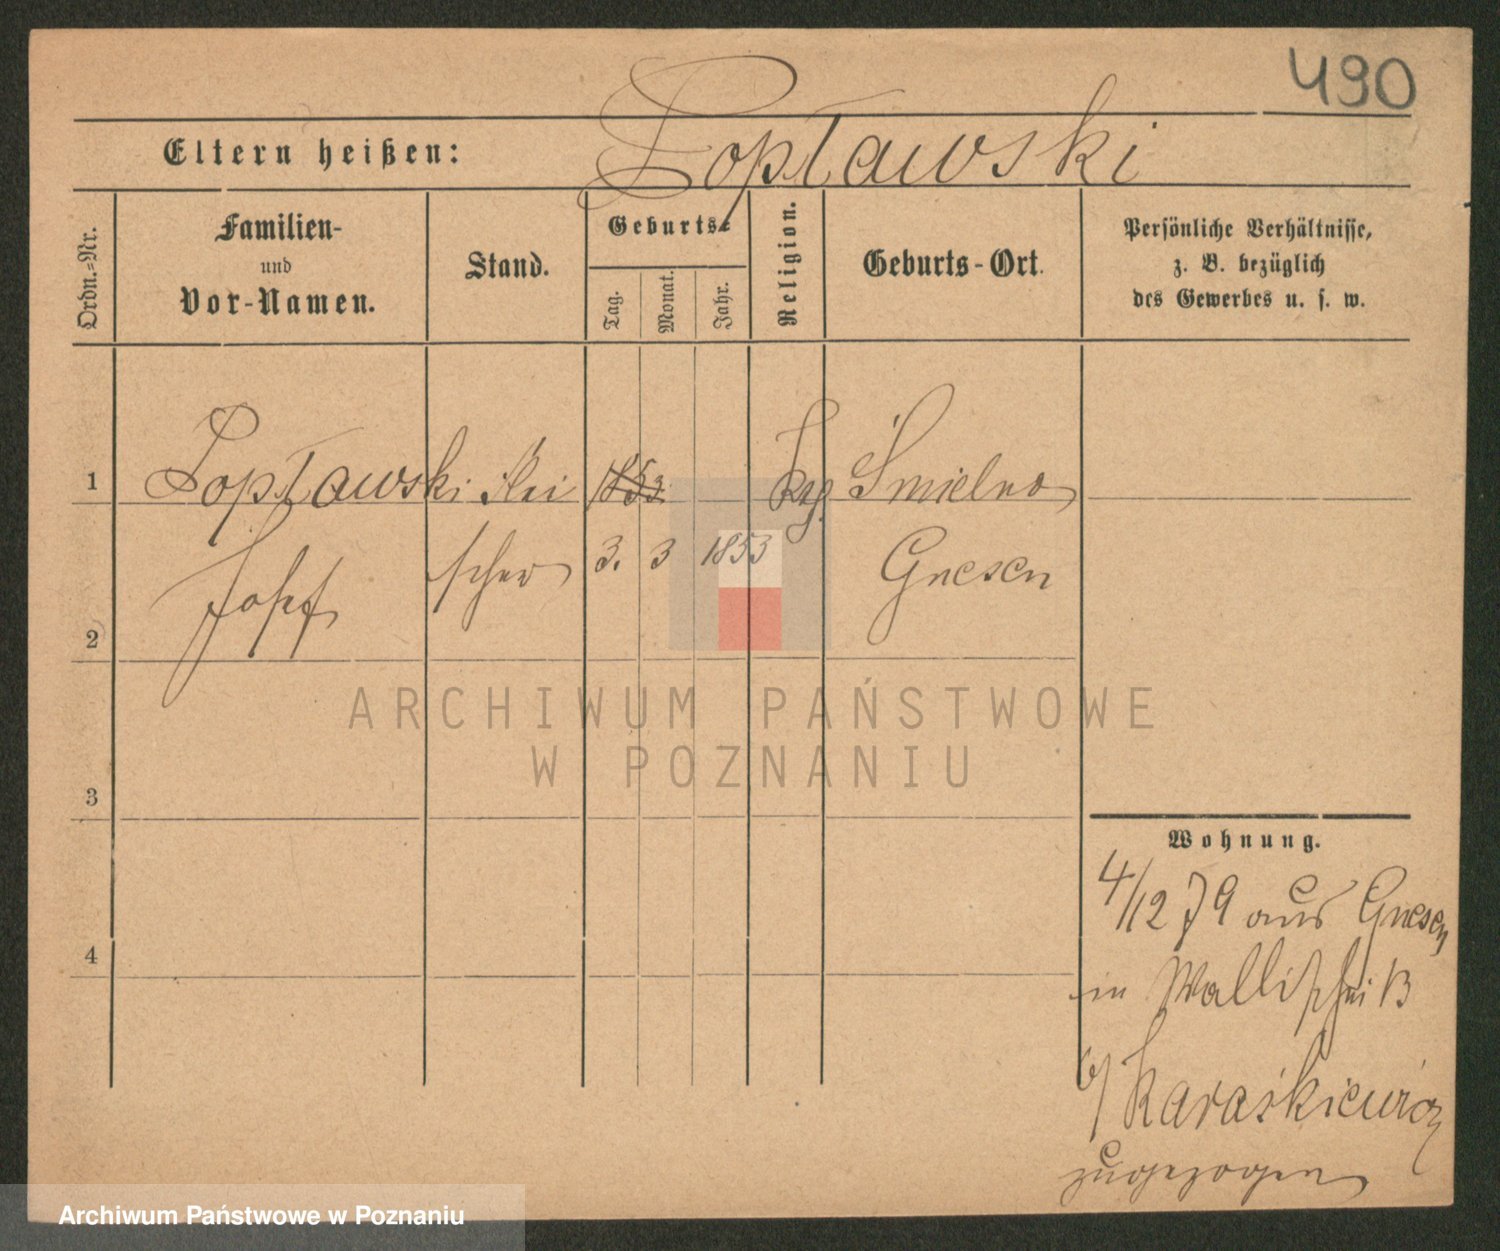 490
Eltern heißen: Popławski
Ordn.-Nr.
Familien-
und
Vor-Namen.
Stand.
Geburts-
Tag.
Monat.
Jahr.
Religion.
Geburts-Ort.
Persönliche Verhältnisse,
z. B. bezüglich
des Gewerbes u. s. w.
1 Popławski 1853 Smielno
Josef 3. 3 1853 Gnesen
2
ARCHIWUM PAŃSTWOWE
W POZNANIU
3
Wohnung.
4/12 79 aus Gnesen
4
in Wallischei 13
b/ Karaśkiewicz
zugezogen
Archiwum Państwowe w Poznaniu